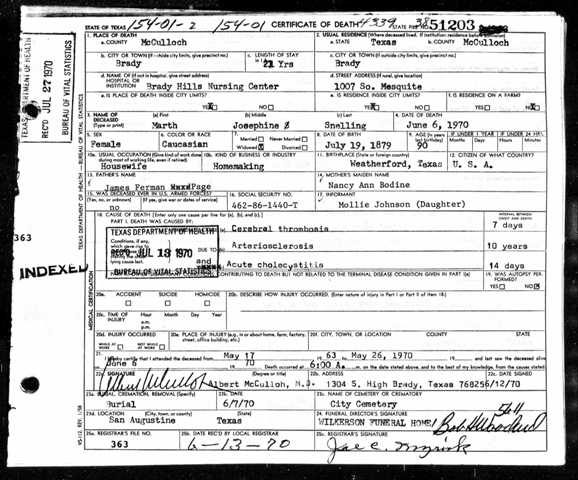 STATE OF TEXAS 154-01-2 154-01 CERTIFICATE OF DEATH 4339 STATE FILE NO. 38 51203
1. PLACE OF DEATH
a. COUNTY McCulloch
2. USUAL RESIDENCE (Where deceased lived. If institution: residence before admission)
a. STATE Texas b. COUNTY McCulloch
b. CITY OR TOWN (If outside city limits, give precinct no.) Brady
c. LENGTH OF STAY Yrs
c. CITY OR TOWN (If outside city limits, give precinct no.) Brady
d. NAME OF (If not in hospital, give street address) HOSPITAL OR INSTITUTION Brady Hills Nursing Center
d. STREET ADDRESS (If rural, give location) 1007 So. Mesquite
e. IS PLACE OF DEATH INSIDE CITY LIMITS? YES X NO
e. IS RESIDENCE INSIDE CITY LIMITS? YES X NO
f. IS RESIDENCE ON A FARM? YES NO
3. NAME OF DECEASED (Type or print)
(a) First Marth
(b) Middle Josephine
(c) Last Snelling
4. DATE OF DEATH June 6, 1970
5. SEX Female
6. COLOR OR RACE Caucasian
7. Married Never Married Widowed X Divorced
8. DATE OF BIRTH July 19, 1879
9. AGE (In years last birthday) 90
IF UNDER 1 YEAR Months Days
IF UNDER 24 HRS. Hours Min.
10a. USUAL OCCUPATION (Give kind of work done during most of working life, even if retired) Housewife
10b. KIND OF BUSINESS OR INDUSTRY Homemaking
11. BIRTHPLACE (State or foreign country) Weatherford, Texas
12. CITIZEN OF WHAT COUNTRY? U. S. A.
13. FATHER'S NAME James Ferman Page
14. MOTHER'S MAIDEN NAME Nancy Ann Bodine
15. WAS DECEASED EVER IN U.S. ARMED FORCES? (Yes, no, or unknown) (If yes, give war or dates of service) no
16. SOCIAL SECURITY NO. 462-86-1440-T
17. INFORMANT Mollie Johnson (Daughter)
18. CAUSE OF DEATH (Enter only one cause per line for (a), (b), and (c).)
PART I. DEATH WAS CAUSED BY:
INTERVAL BETWEEN ONSET AND DEATH
Cerebral thrombosis 7 days
DUE TO Arteriosclerosis 10 years
and Acute cholocystitis 14 days
TEXAS DEPARTMENT OF HEALTH
REC'D JUL 13 1970
BUREAU OF VITAL STATISTICS
CONTRIBUTING TO DEATH BUT NOT RELATED TO THE TERMINAL DISEASE CONDITION GIVEN IN PART I(a)
19. WAS AUTOPSY PERFORMED? YES NO X
20a. ACCIDENT SUICIDE HOMICIDE
20b. DESCRIBE HOW INJURY OCCURRED. (Enter nature of injury in Part I or Part II of Item 18.)
20c. TIME OF INJURY Hour Month Day Year a.m. p.m.
20d. INJURY OCCURRED WHILE AT WORK NOT WHILE AT WORK
20e. PLACE OF INJURY (e.g., in or about home, farm, factory, street, office building, etc.)
20f. CITY, TOWN, OR LOCATION COUNTY STATE
21. I hereby certify that I attended the deceased from May 17 19 63 to May 26, 1970 and last saw the deceased alive
June 6 19 70 Death occurred at 6:00 A. m. on the date stated above, and to the best of my knowledge, from the causes stated.
22a. SIGNATURE (Degree or title) Albert McCulloh, M.D.
22b. ADDRESS 1304 S. High Brady, Texas 76825
22c. DATE SIGNED 6/12/70
23a. BURIAL, CREMATION, REMOVAL (Specify) Burial
23b. DATE 6/7/70
23c. NAME OF CEMETERY OR CREMATORY City Cemetery
23d. LOCATION (City, town, or county) (State) San Augustine Texas
24. FUNERAL DIRECTOR'S SIGNATURE WILKERSON FUNERAL HOME
25a. REGISTRAR'S FILE NO. 363
25b. DATE REC'D BY LOCAL REGISTRAR 6-13-70
25c. REGISTRAR'S SIGNATURE
TEXAS DEPARTMENT OF HEALTH
REC'D JUL 27 1970
BUREAU OF VITAL STATISTICS
TEXAS DEPARTMENT OF HEALTH — BUREAU OF VITAL STATISTICS
363
INDEXED
MEDICAL CERTIFICATION